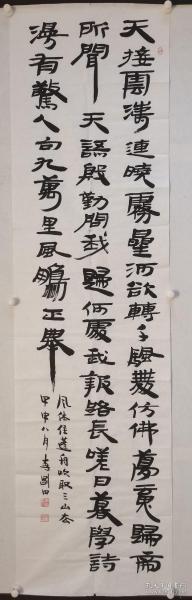 天接雲濤連曉霧星河欲轉千帆舞仿佛夢魂歸帝
所聞天語殷勤問我歸何處我報路長嗟日暮學詩
漫有驚人句九萬里風鵬正舉
風休住蓬舟吹取三山去
甲申八月李剛田